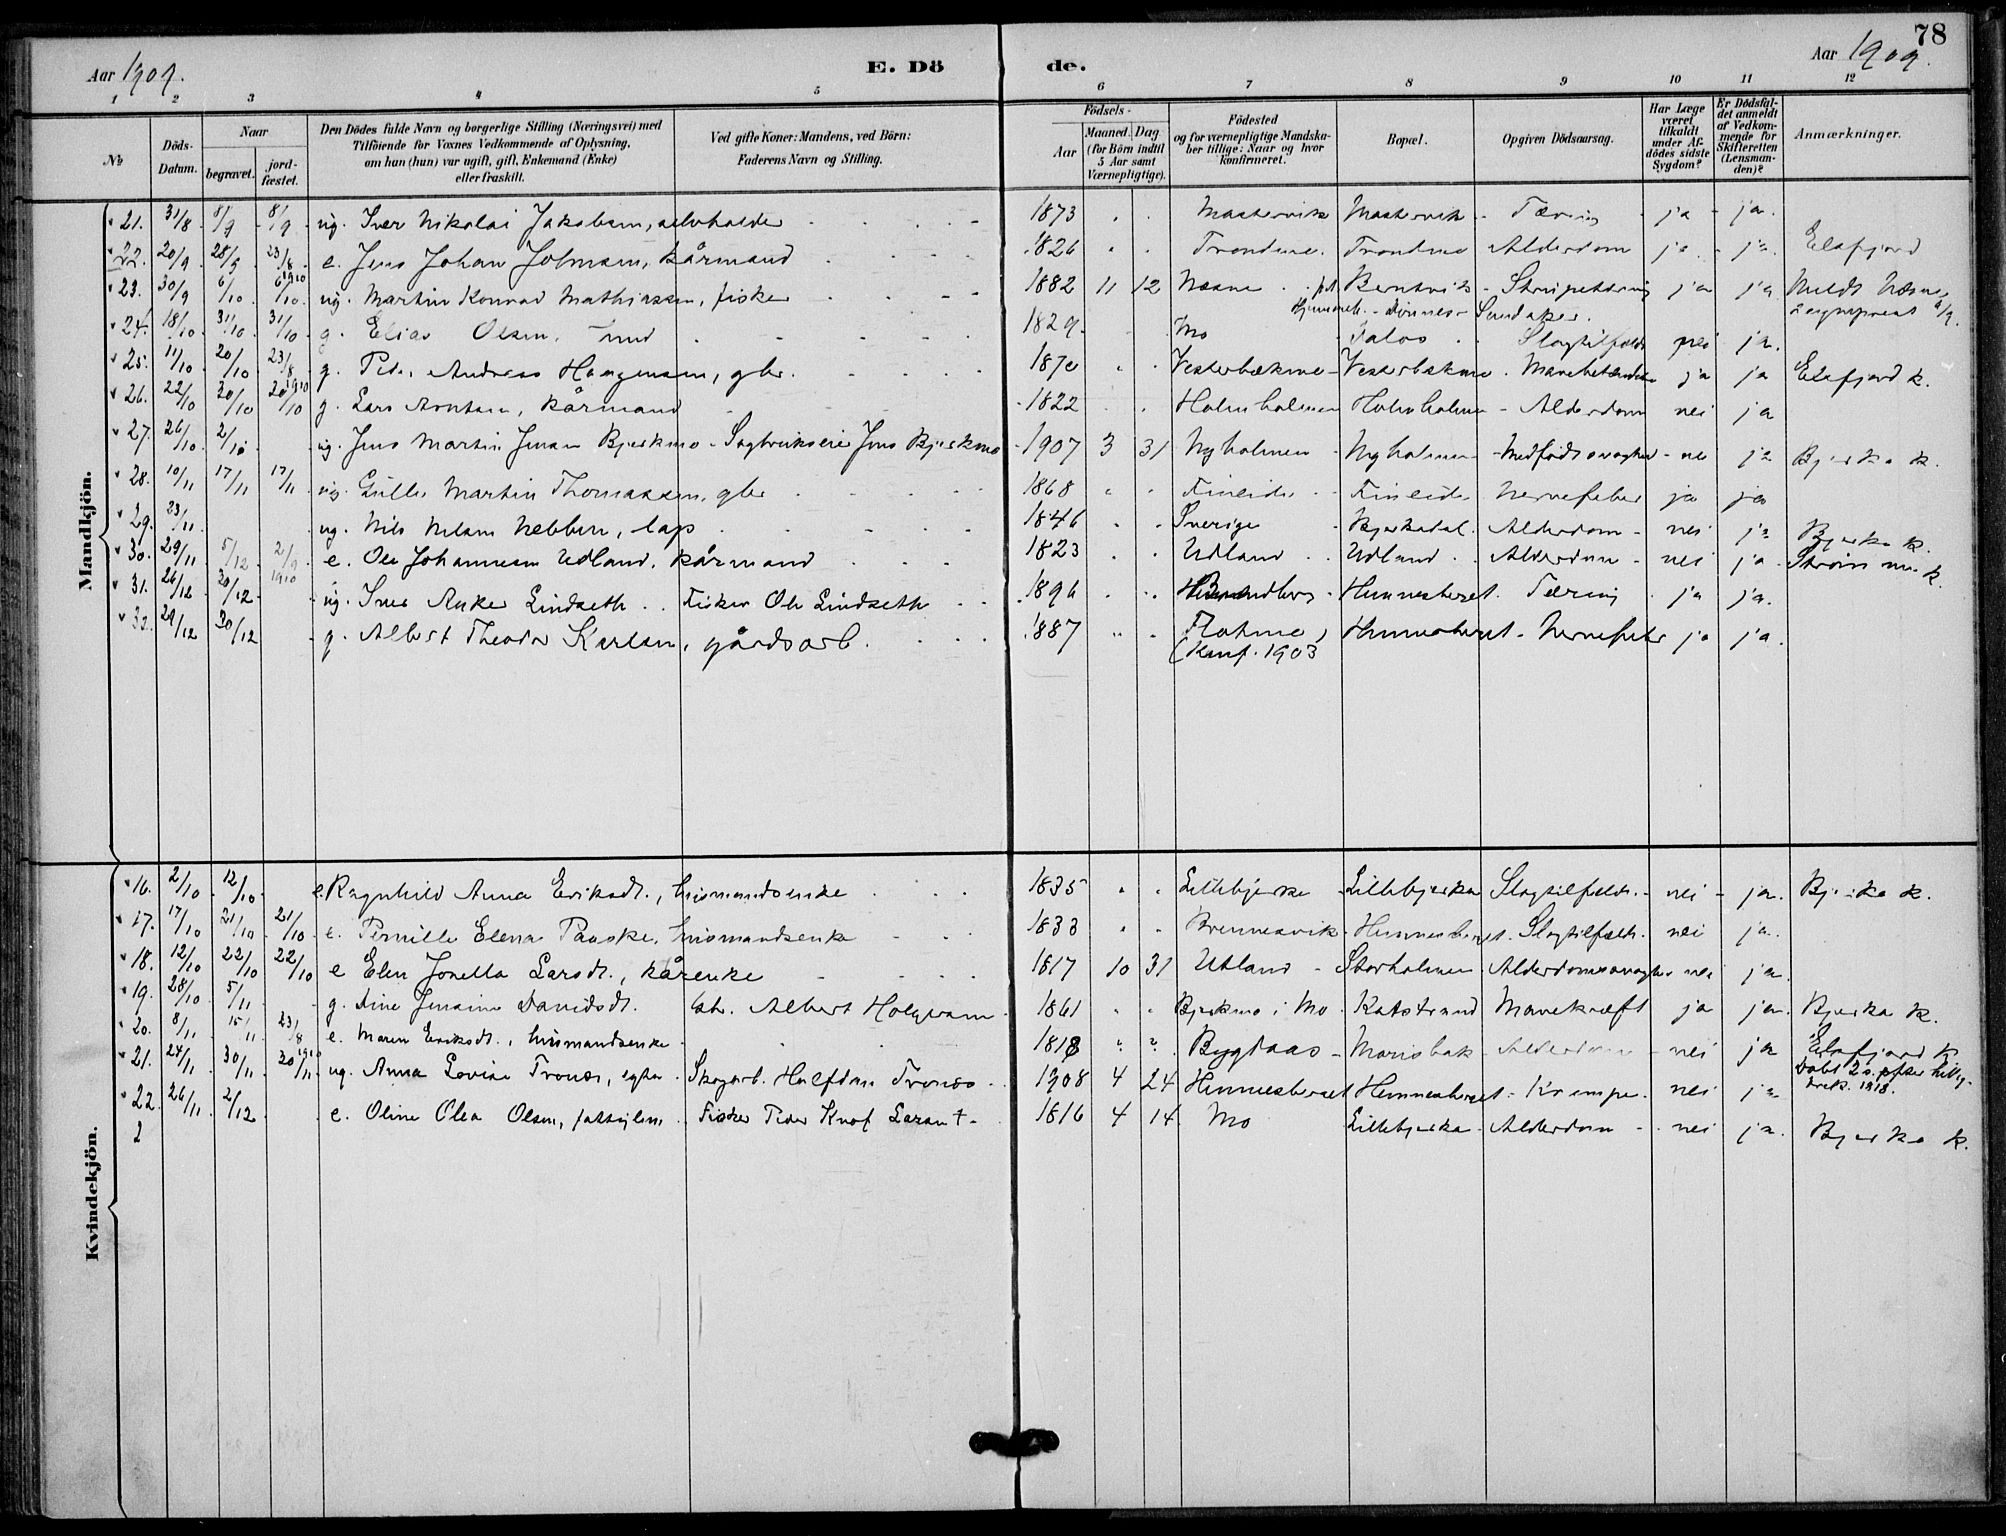 78
Aar 1909. E. Dö de. Aar 1909.
1 2 3 4 5 6 7 8 9 10 11 12
№
Döds-Datum.
Naar
begravet.
jord-fæstet.
Den Dödes fulde Navn og borgerlige Stilling (Næringsvei) med
Tilföiende for Voxnes Vedkommende af Oplysning,
om han (hun) var ugift, gift, Enkemand (Enke)
eller fraskilt.
Ved gifte Koner: Mandens, ved Börn:
Faderens Navn og Stilling.
Födsels-
Aar
Maaned. Dag
(for Börn indtil
5 Aar samt
Værnepligtige).
Födested
og for værnepligtige Mandska-
ber tillige: Naar og hvor
konfirmeret.
Bopæl.
Opgiven Dödsaarsag.
Har Læge
været
tilkaldt
under Af-
dödes sidste
Sygdom?
Er Dödsfal-
det anmeldt
af Vedkom-
mende for
Skifteretten
(Lensman-
den)?
Anmærkninger.
Mandkjön.
21. 31/8 8/9 8/9 ug. Iver Nikolai Jakobsen, selvholder 1873 " " Mastervik Mastervik Tæring ja ja.
22. 20/9 28/9 23/8 1910 e. Jens Johan Johnsen, kårmand 1826 " " Trondmo. Trondmo Alderdom ja ja Elsfjord
23. 30/9 6/10 6/10 ug. Martin Konrad Mathiassen, fisker 1882 11 12 Næsne Strupetæring ja ja
24. 18/10 31/10 31/10 g. Elias Olsen 1829 Mo Slagtilfælde nei ja.
25. 11/10 20/10 23/8 1910 g. Peder Andreas Haagensen, gbr. 1870 " " Vesterbækmo Vesterbækmo Mavebetændelse ja ja Elsfjord k.
26. 22/10 30/10 20/10 g. Lars Arntsen, kårmand 1822 Holmholmen Holmholmen Alderdom nei ja
27. 26/10 2/10 ug. Jens Martin Jensen Bjerkmo Sagbrukseier Jens Bjerkmo 1907 3 31 Nyholmen Nyholmen Medfødt svaghed nei ja Bjerka k.
28. 10/11 17/11 17/11 ug. Gulle Martin Thomassen, gbr 1868 " " Fineide Fineide Nervefeber ja ja
29. 23/11 ug. Nils Nilsen Nebben, lap 1846 " " Sverige Bjerkadal Alderdom nei ja Bjerka k.
30. 29/11 5/12 2/9 1910 e. Ole Johannesen Udland, kårmand 1823 " " Udland Udland Alderdom nei ja
31. 26/12 30/12 ug. Iver Anker Lindseth Fisker Ole Lindseth 1896 " " Hemnesberget Tæring ja ja.
32. 29/12 30/12 g. Albert Theodor Karlsen, gårdsarb. 1887 " " Flatmo, Hemnesberget Nervefeber ja ja.
(Konf. 1903
Kvindekjön.
16. 2/10 12/10 e. Ragnhild Anna Eriksdt., husmandsenke 1835 " " Lillebjerka Lillebjerka Slagtilfælde nei ja. Bjerka k.
17. 17/10 21/10 21/10 e. Pernille Elena Pauske, husmandsenke 1833 " " Brennesvik Hemnesberget Slagtilfælde nei ja.
18. 12/10 22/10 22/10 e Elen Jonetta Larsdt., kårenke 1817 10 31 Utland Storholmen Alderdomssvaghed nei ja
19. 28/10 5/11 g. Line Jensine Davidsdt. Gbr. Albert Holqvam 1861 " " Bjerkmo i Mo Katstrand Mavekræft ja ja. Bjerka k.
20. 8/11 15/11 23/8 1910 e. Maren Eriksdt., husmandsenke 1818 " " Bygdaas Marisbak Alderdom nei ja Elsfjord k.
21. 24/11 30/11 30/11 ug. Anna Lovise Tronæs, egte Skogarb. Halfdan Tronæs 1908 4 24 Hemnesberget Hemnesberget Krampe nei ja
22. 26/11 2/12 e. Oline Olea Olsen, fattiglem Fisker Peder Knof Larsen † 1816 4 14 Mo Lillebjerka Alderdom nei ja. Bjerka k.